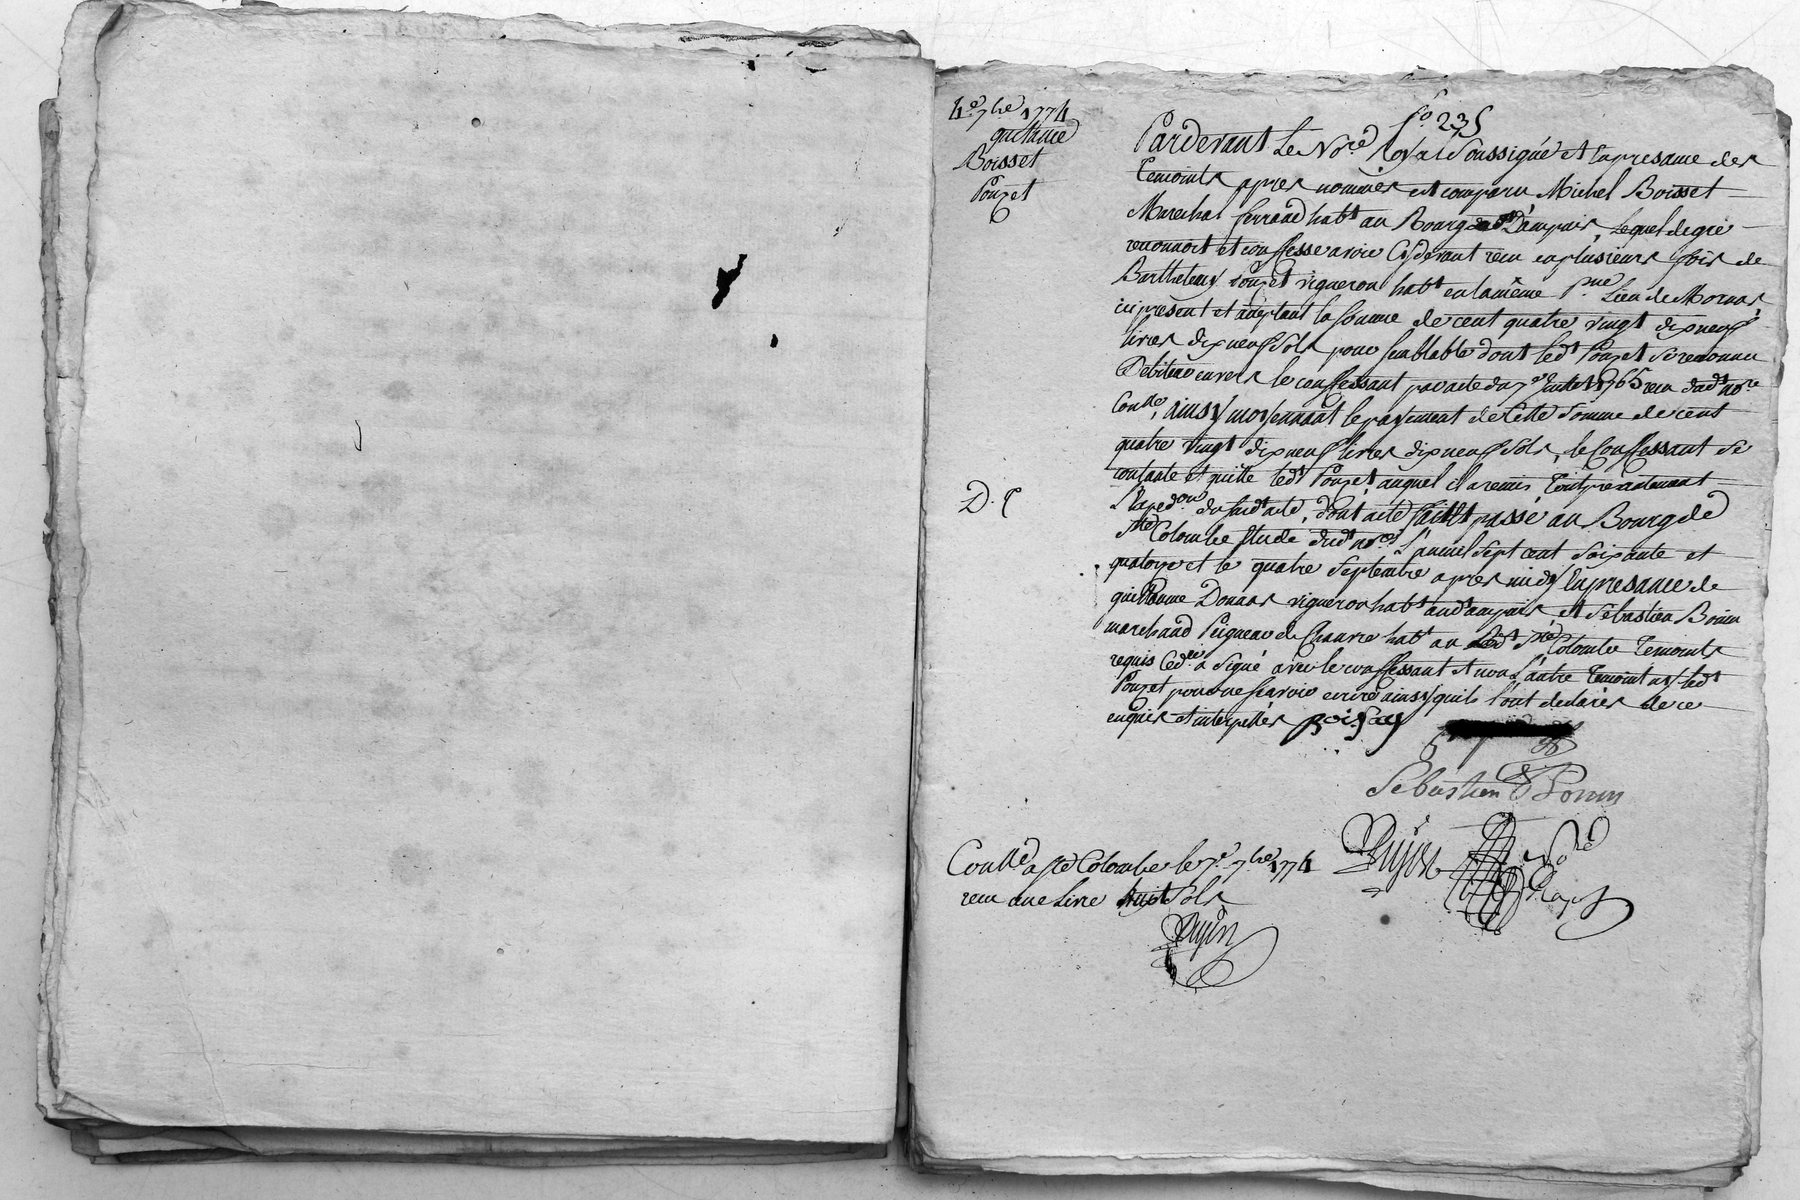 4e 7bre 1774
quittance
Boisset
Pouzet
fo 235
Pardevant Le Nore Royal Soussigné et En presance des
Temoints apres nommés est comparu Michel Boisset
Marechal ferrand habt au Bourg Dampuis, Lequel de gré
reconnoit et confesse avoir Cy devant recu en plusieurs fois de
Barthelemy Pouzet vigneron habt en la même lieu de Mornas
ici présent et acceptant la Somme de cent quatre vingt dix neuf
livres dix neuf Sols pour semblable dont ledt Pouzet se reconnu
Debiteur envers le confessant par acte du 7e 1765 recu dudt nore
Conllé, ainsy moyennant le payement de Cette Somme de cent
quatre vingt dix neuf livres dix neuf Sols, le Confessant Se
contante et quitte ledt Pouzet auquel il a remis Tout presantement
D. q
L'expedon du susdt acte, dont acte fait et passé au Bourg de
Ste Colombe Etude dudt nore L'an mil Sept cent Soixante et
quatorze et le quatre Septembre apres midy En presance de
guillaume Donnas vigneron habt audt ampuis, et Sebastien Bonin
marchand Peigneur de Chanvre habt au ledt Ste Colombe Temoints
requis Led. a Signé avec le confessant et non L'autre Temoint ny ledt
Pouzet pour ne sçavoir ecrire ainsy quils l'ont declarés de ce
enquis et interpellés Boissay
Sebastien Bonin
Conllé a Ste Colombe le 7e 7bre 1774
recu une Livre huit Sols
Dujon
Nore
Royal
Dujon